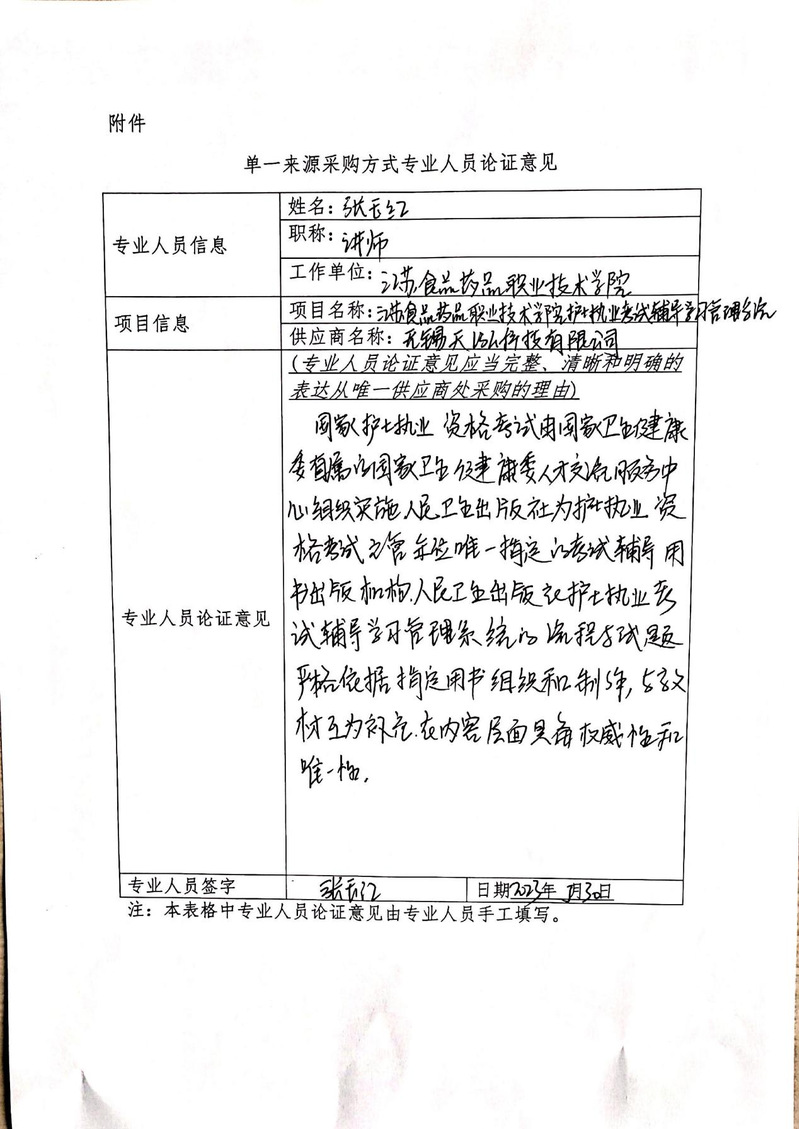 附件
单一来源采购方式专业人员论证意见
专业人员信息
姓名：张红
职称：讲师
工作单位：江苏食品药品职业技术学院
项目信息
项目名称：江苏食品药品职业技术学院护士执业考试辅导学习管理系统
供应商名称：无锡天科技有限公司
(专业人员论证意见应当完整、清晰和明确的
表达从唯一供应商处采购的理由)
专业人员论证意见
国家护士执业资格考试由国家卫生健康
委直属的国家卫生健康委人才交流服务中
心组织实施,人民卫生出版社为护士执业资
格考试主管单位唯一指定的考试辅导用
书出版机构,人民卫生出版社护士执业考
试辅导学习管理系统的流程与试题
严格依据指定用书组织和制作,与教
材互为补充.在内容层面具备权威性和
唯一性.
专业人员签字
张红
日期2023年 月30日
注：本表格中专业人员论证意见由专业人员手工填写。